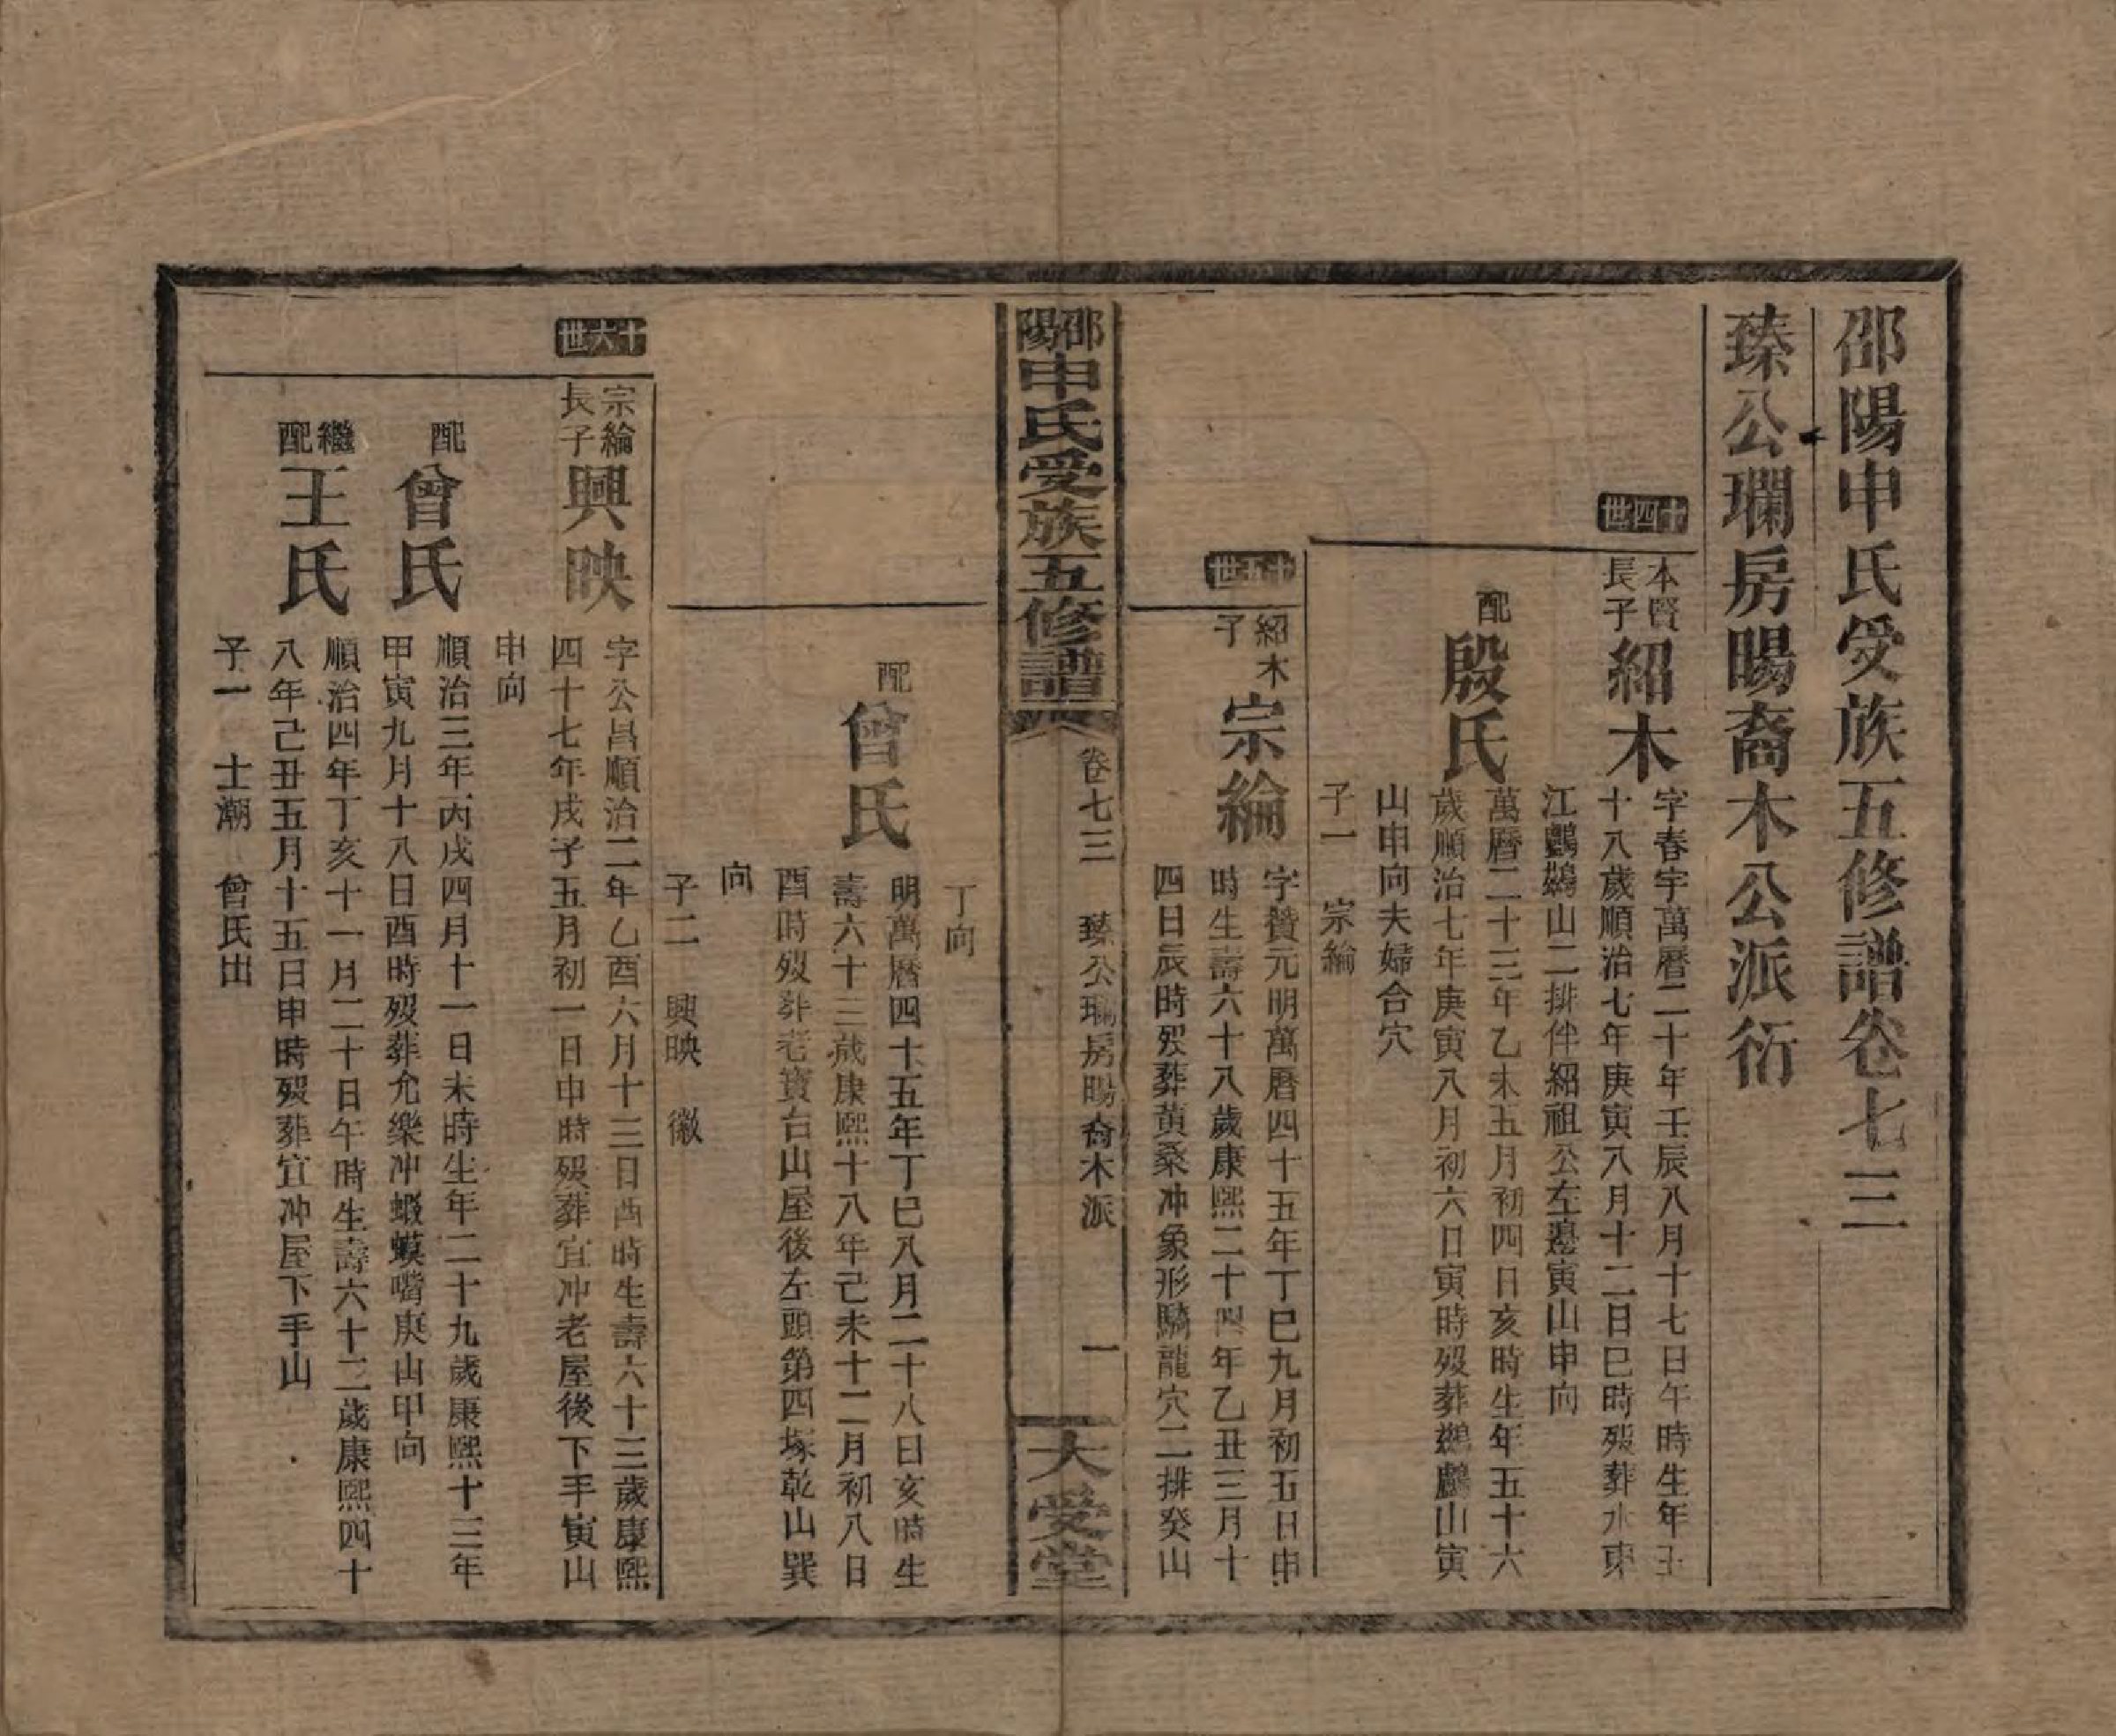 邵陽申氏受族五修譜卷七三
臻公瓓房暘裔木公派衍
十四世
本賢長子
紹木
字春宇萬曆二十年壬辰八月十七日午時生年五
十八歲順治七年庚寅八月十二日巳時歿葬水東
江鸕鷀山二排伴紹祖公左邊寅山申向
配
殷氏
萬曆二十三年乙未五月初四日亥時生年五十六
歲順治七年庚寅八月初六日寅時歿葬鷀鸕山寅
山申向夫婦合穴
子一 宗綸
十五世
紹木子
宗綸
字贊元明萬曆四十五年丁巳九月初五日申
時生壽六十八歲康熙二十四年乙丑三月十
四日辰時歿葬黃桑冲象形騎龍穴二排癸山
邵陽申氏受族五修譜
卷七三 臻公瓓房暘裔木派 一
大受堂
丁向
配
曾氏
明萬曆四十五年丁巳八月二十八日亥時生
壽六十三歲康熙十八年己未十二月初八日
酉時歿葬老寶台山屋後左頭第四塚乾山巽
向
子二 興映 徽
十六世
宗綸長子
興映
字公昌順治二年乙酉六月十三日酉時生壽六十三歲康熙
四十七年戌子五月初一日申時歿葬宜冲老屋後下手寅山
申向
配
曾氏
順治三年丙戌四月十一日未時生年二十九歲康熙十三年
甲寅九月十八日酉時歿葬允樂冲蝦蟆嘴庚山甲向
繼配
王氏
順治四年丁亥十一月二十日午時生壽六十二歲康熙四十
八年己丑五月十五日申時歿葬宜冲屋下手山
子一 士潮 曾氏出